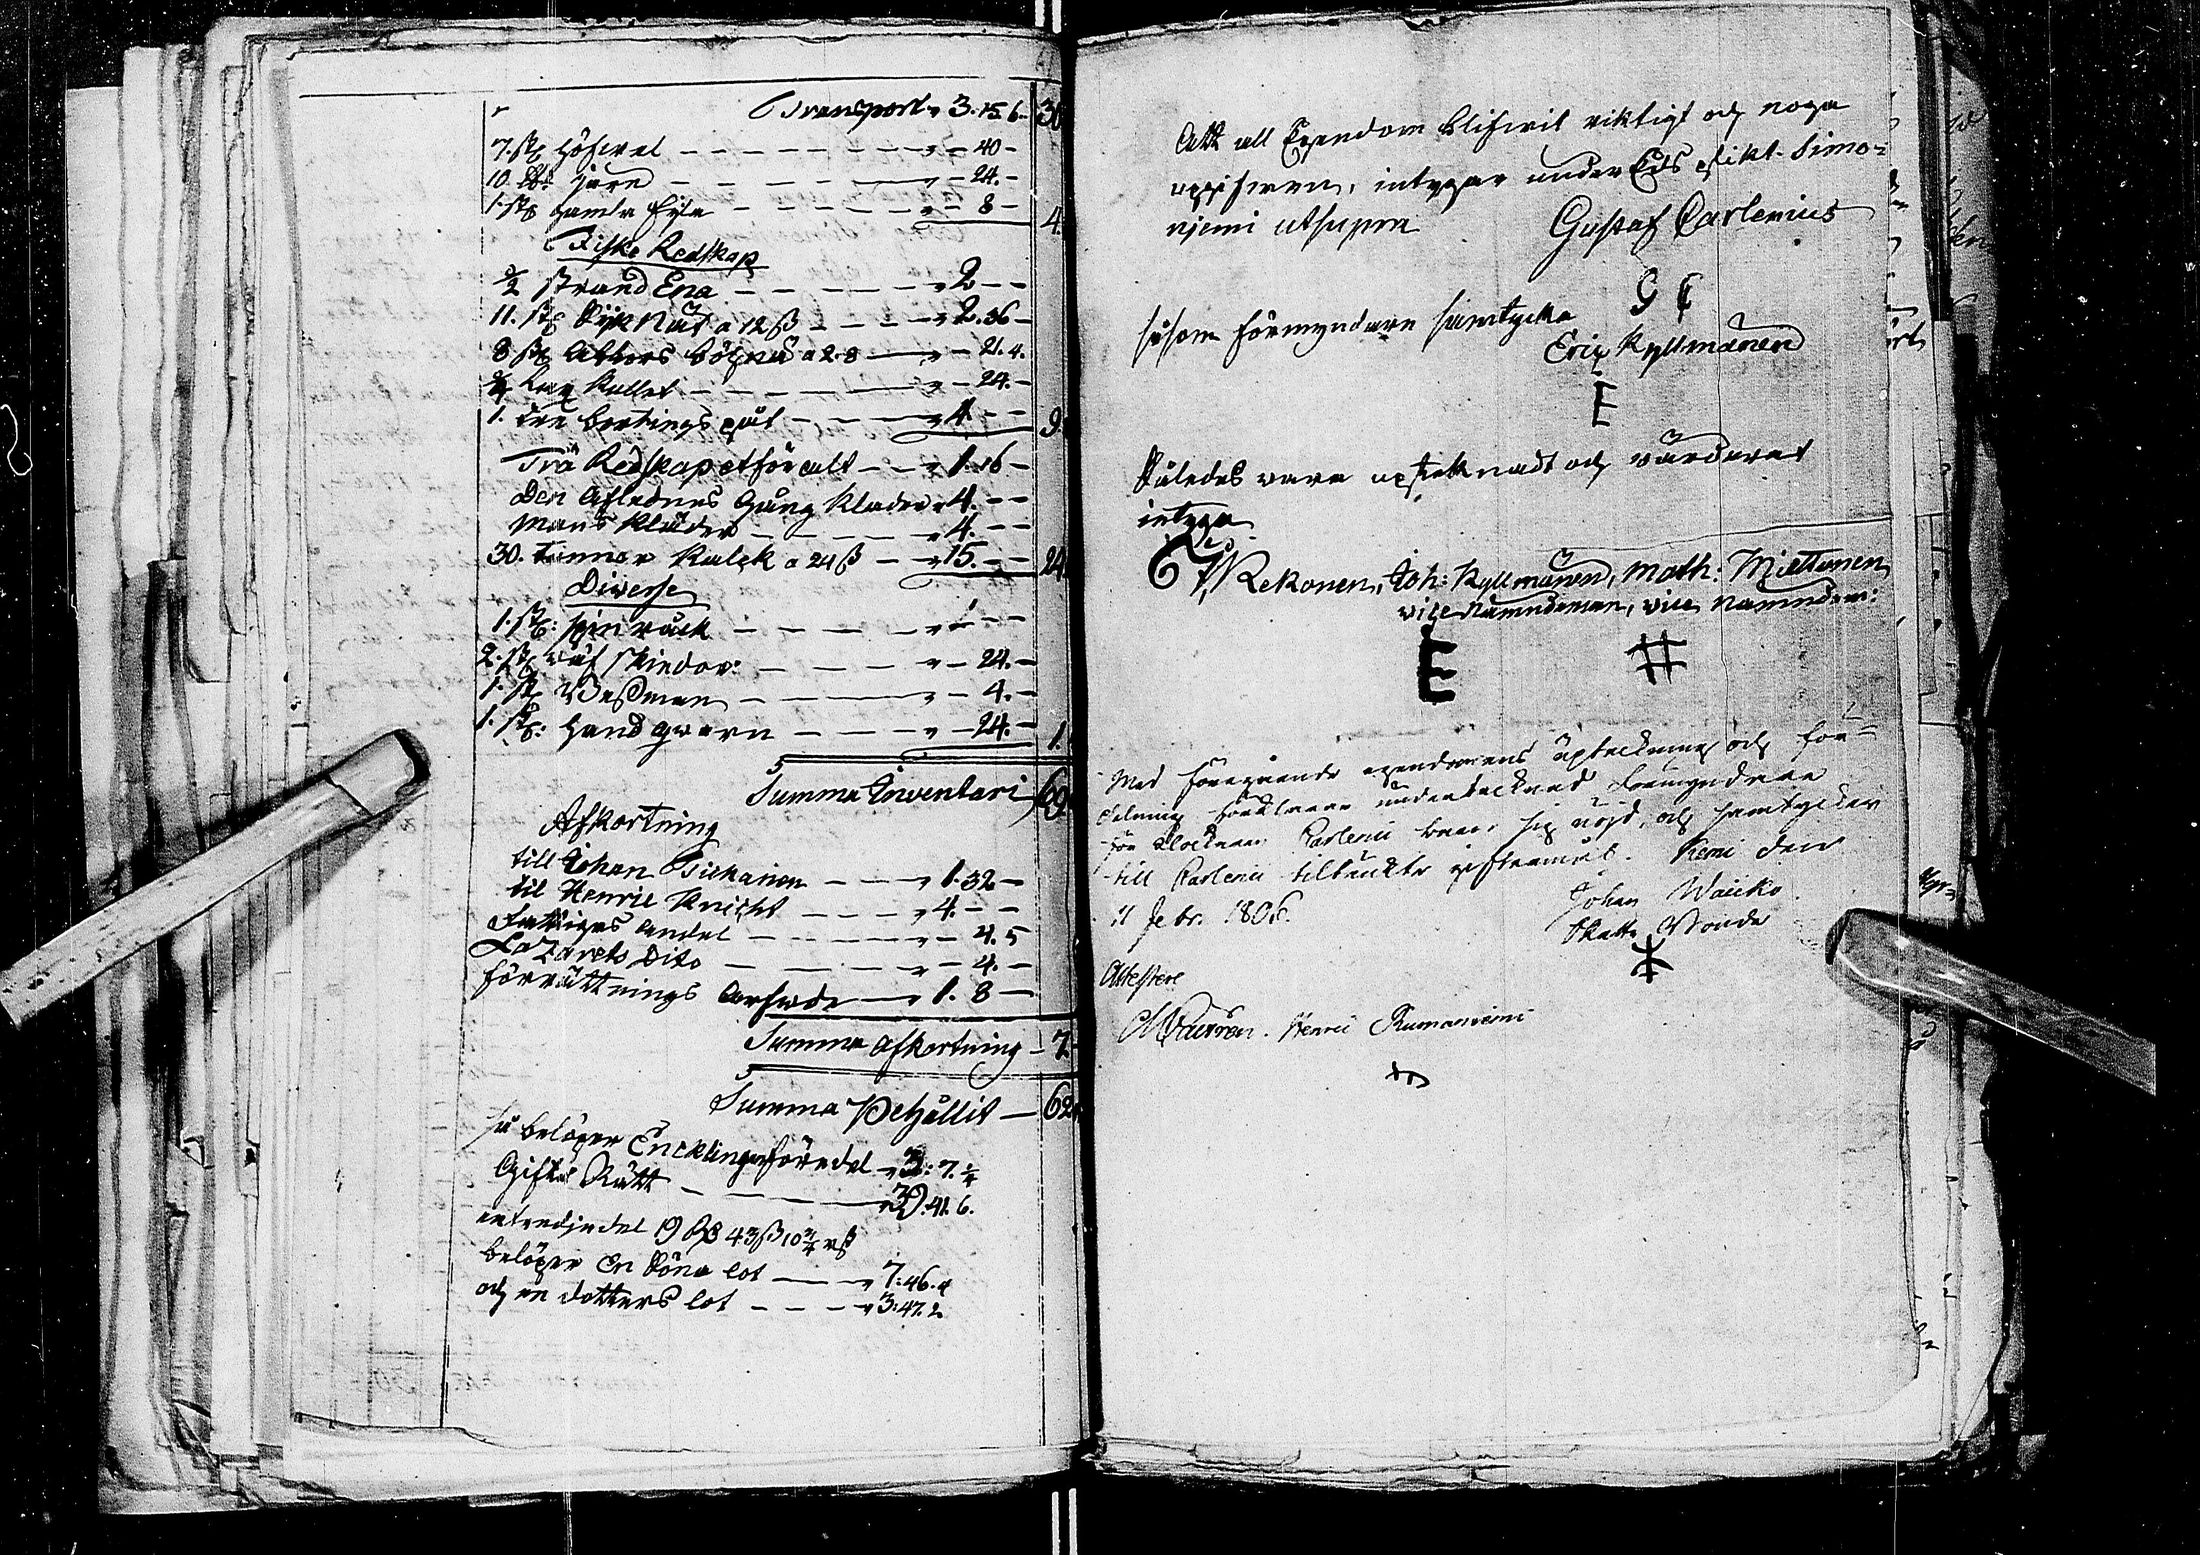 Transport " 3.15.6 30
7. st: Höfvel " - 40 -
10. ℔: järn " - 24. -
1. st: gamla " - 8 - 4.
Fiske Redskap
½ strand Ena " 2 - -
11. st: Sijk Nät a 12 ß " 2.36 -
8 st: Abbors a 2.8 " - 21.4.
Lax - 24. -
1. " 4. - - 9.
Trä Redskapet för alt " 1.16 -
Den Aflednes Gång Kläder " 4. - -
Mans Kläder " 4. - -
30. Tunnor a 24 ß " 15. - - 24.
Diverse
1. st: spinråck " 1 - -
2. st: väf skiedor: " - 24. -
1. st: Bessman " - 4. -
1. st: Hand qvarn " - 24. - 1.
Summa Inventarii 69.
Afkortning
till Johan " 1.32 -
til Henric Knicht " 4. - -
Fattigas andel " - 4.5
Lazarets Dito " - 4. -
förrättnings Arfvode " 1. 8 -
Summa Afkortning - 7.
Summa Behållit - 62.
så belöper Encklings fördel " 3:7.¼
Gifto Rätt " 39.41.6.
en tredjedel 19 Rd 43 ß 10 ¾ rß
belöper En Söns lot " 7:46.4
och en dotters lot " 3:47.2
Att all Egendom blifvit riktigt och noga
uppgifven, intygar under Eds plikt. Simo=
niemi utsupra Gustaf Carlenius
G C
såsom förmyndare samtycka
Eric Kyllmänen
E
Således vara uptecknadt och värderat
intyga
Kekonen, Joh: Kyllmänen, Math: Miettunen
vice Nämndeman, vice Nämndem:
E #
Med föregående egendomens upteckning och för=
delning förklarar undertecknad förmyndare
för Klockaren Carlenii barn, sig nöjd, och samtycker
till Carlenii tilltänkte giftermål. Kemi den
11 Febr. 1806. Johan Waiiko
Skatte Bonde
Attestera
Henric